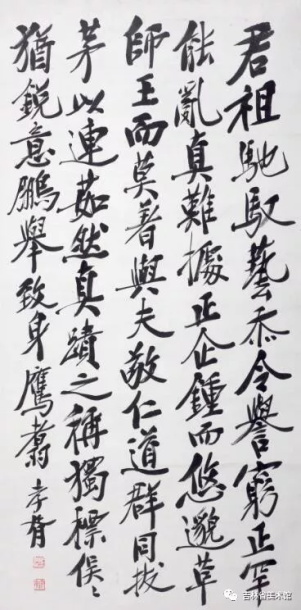 君祖馳馭藝忝令譽窮正罕
能亂真難據正企鍾而悠邈草
師王而莫著與夫敬仁道群同拔
茅以連茹然真蹟之稱獨標俟〻
猶銳意鵬舉致身鷹翥
吉林省美术馆